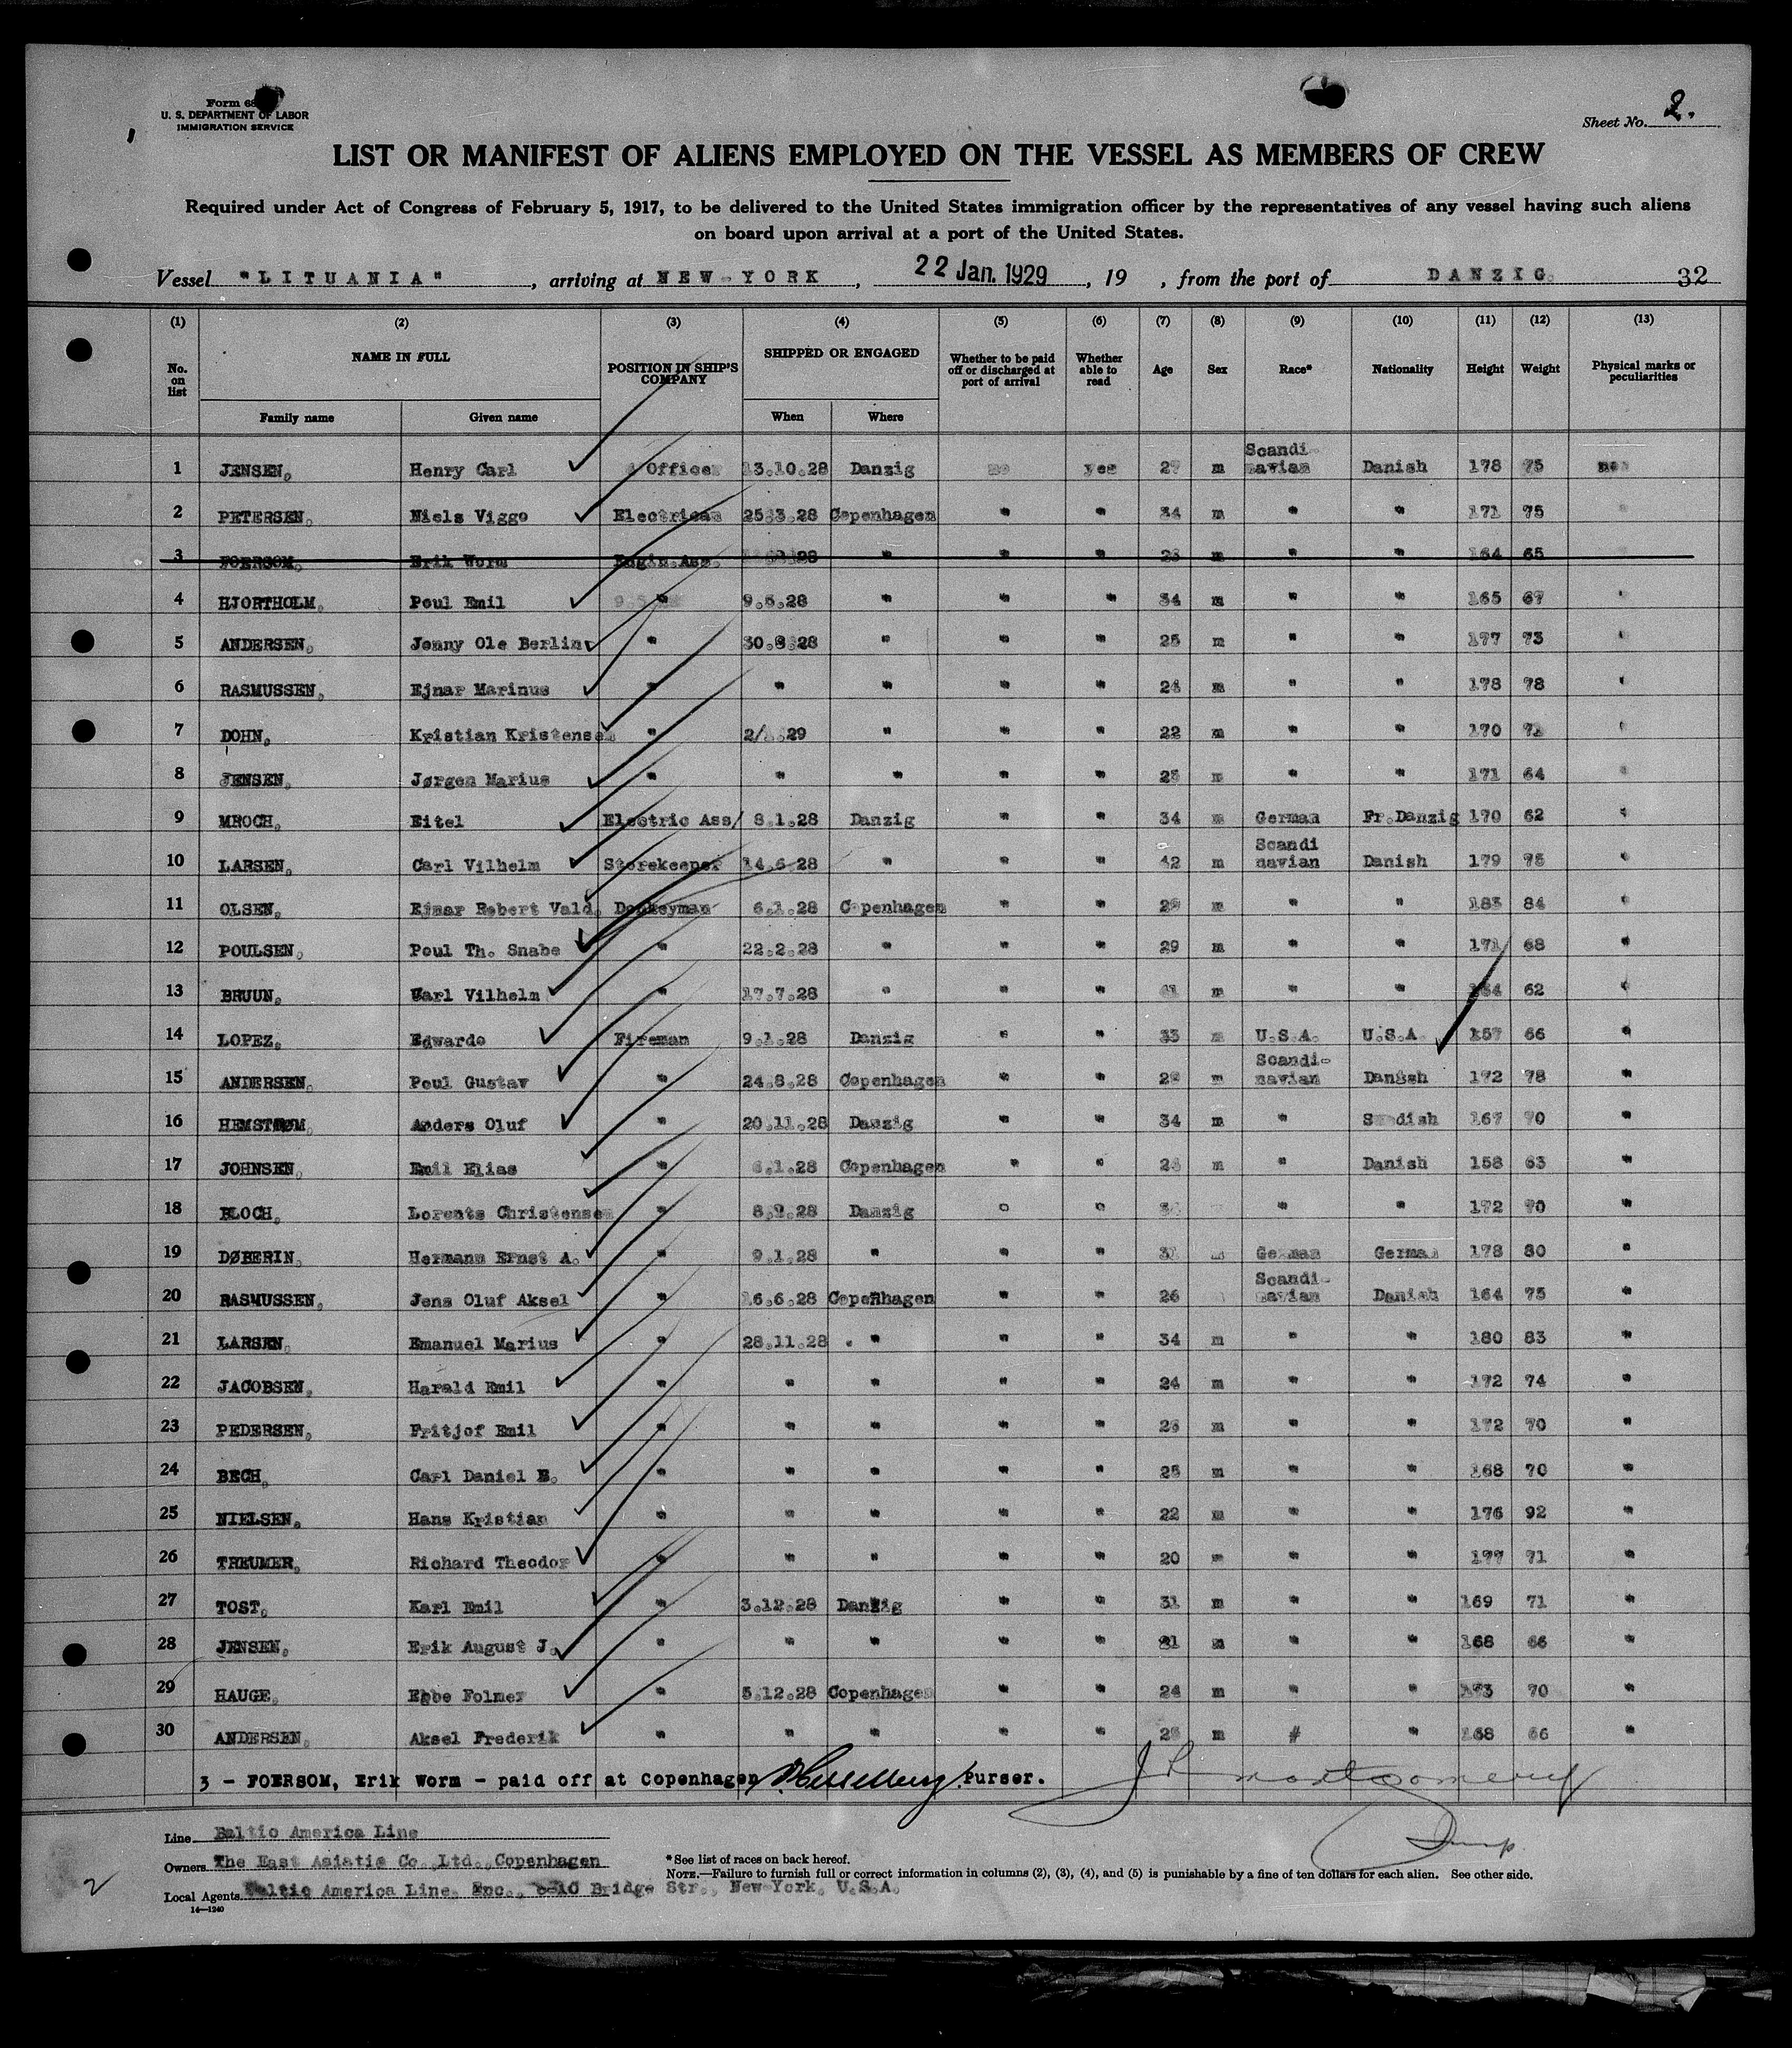 Form 68
U. S. DEPARTMENT OF LABOR
IMMIGRATION SERVICE
Sheet No. 2.
LIST OR MANIFEST OF ALIENS EMPLOYED ON THE VESSEL AS MEMBERS OF CREW
Required under Act of Congress of February 5, 1917, to be delivered to the United States immigration officer by the representatives of any vessel having such aliens
on board upon arrival at a port of the United States.
Vessel "LITUANIA", arriving at NEW-YORK, 22 Jan. 1929, 19 , from the port of DANZIG. 32
(1) (2) (3) (4) (5) (6) (7) (8) (9) (10) (11) (12) (13)
No. on list NAME IN FULL POSITION IN SHIP'S COMPANY SHIPPED OR ENGAGED Whether to be paid off or discharged at port of arrival Whether able to read Age Sex Race* Nationality Height Weight Physical marks or peculiarities
Family name Given name When Where
1 JENSEN, Henry Carl Officer 13.10.28 Danzig no yes 27 m Scandi-navian Danish 178 75
2 PETERSEN, Niels Viggo Electrican 28 Copenhagen " " 34 m " " 171 75
3 FOERSOM, Erik Worm Engin.Ass. 28 " " " m " " 164 65
4 HJORTHOLM, Poul Emil " 9.5.28 " " " 34 m " " 165 67 "
5 ANDERSEN, Jonny Ole Berlin " 30.8.28 " " " 25 m " " 177 73 "
6 RASMUSSEN, Ejnar Marinus " " " " " 24 m " " 178 78 "
7 DOHN, Kristian Kristensen " 29 " " " 22 m " " 170 "
8 JENSEN, Jørgen Marius " " " " " m " " 171 64 "
9 MROCH, Eitel Electric Ass/ 8.1.28 Danzig " " 34 m German Fr.Danzig 170 62 "
10 LARSEN, Carl Vilhelm Storekeeper 14.6.28 " " " 42 m Scandi navian Danish 179 75 "
11 OLSEN, Ejnar Robert Vald. Donkeyman 6.1.28 Copenhagen " " m " " 183 84 "
12 POULSEN, Poul Th. Snabe " 22.2.28 " " " 29 m " " 171 68 "
13 BRUUN, Carl Vilhelm " 17.7.28 " " " 41 m " " 164 62 "
14 LOPEZ, Edwardo Fireman 9.1.28 Danzig " " 33 m U.S.A. U.S.A. 157 66 "
15 ANDERSEN, Poul Gustav " 24.8.28 Copenhagen " " m Scandi-navian Danish 172 78 "
16 Anders Oluf " 20.11.28 Danzig " " 34 m " Swedish 167 70 "
17 JOHNSEN, Emil Elias " 6.1.28 Copenhagen " " m " Danish 158 63 "
18 BLOCH, Lorents Christensen " 28 Danzig " " " " 172 70 "
19 DØBERIN, Hermann Ernst A. " 9.1.28 " " " 31 m German German 178 80 "
20 RASMUSSEN, Jens Oluf Aksel " 16.6.28 Copenhagen " " 26 Scandi-navian Danish 164 75 "
21 LARSEN, Emanuel Marius " 28.11.28 " " " 34 m " " 180 83 "
22 JACOBSEN, Harald Emil " " " " " 24 m " " 172 74 "
23 PEDERSEN, Fritjof Emil " " " " " m " " 172 70 "
24 BECH, Carl Daniel E. " " " " " 25 m " " 168 70 "
25 NIELSEN, Hans Kristian " " " " " 22 m " " 176 92 "
26 THEUMER, Richard Theodor " " " " " 20 m " " 177 71 "
27 TOST, Karl Emil " 3.12.28 Danzig " " 31 m " " 169 71 "
28 JENSEN, Erik August J. " " " " " 21 m " " 168 66 "
29 HAUGE, Ebbe Folmer " 5.12.28 Copenhagen " " 24 m " " 173 70 "
30 ANDERSEN, Aksel Frederik " " " " " m # " 168 66 "
3 - FOERSOM, Erik Worm - paid off at Copenhagen Purser. Montgomery
Line Baltic America Line
Owners The East Asiatic Co.,Ltd., Copenhagen
*See list of races on back hereof.
NOTE.—Failure to furnish full or correct information in columns (2), (3), (4), and (5) is punishable by a fine of ten dollars for each alien. See other side.
Local Agents Baltic America Line, Inc., 8-10 Bridge Str., New-York, U.S.A.
14—1240
2